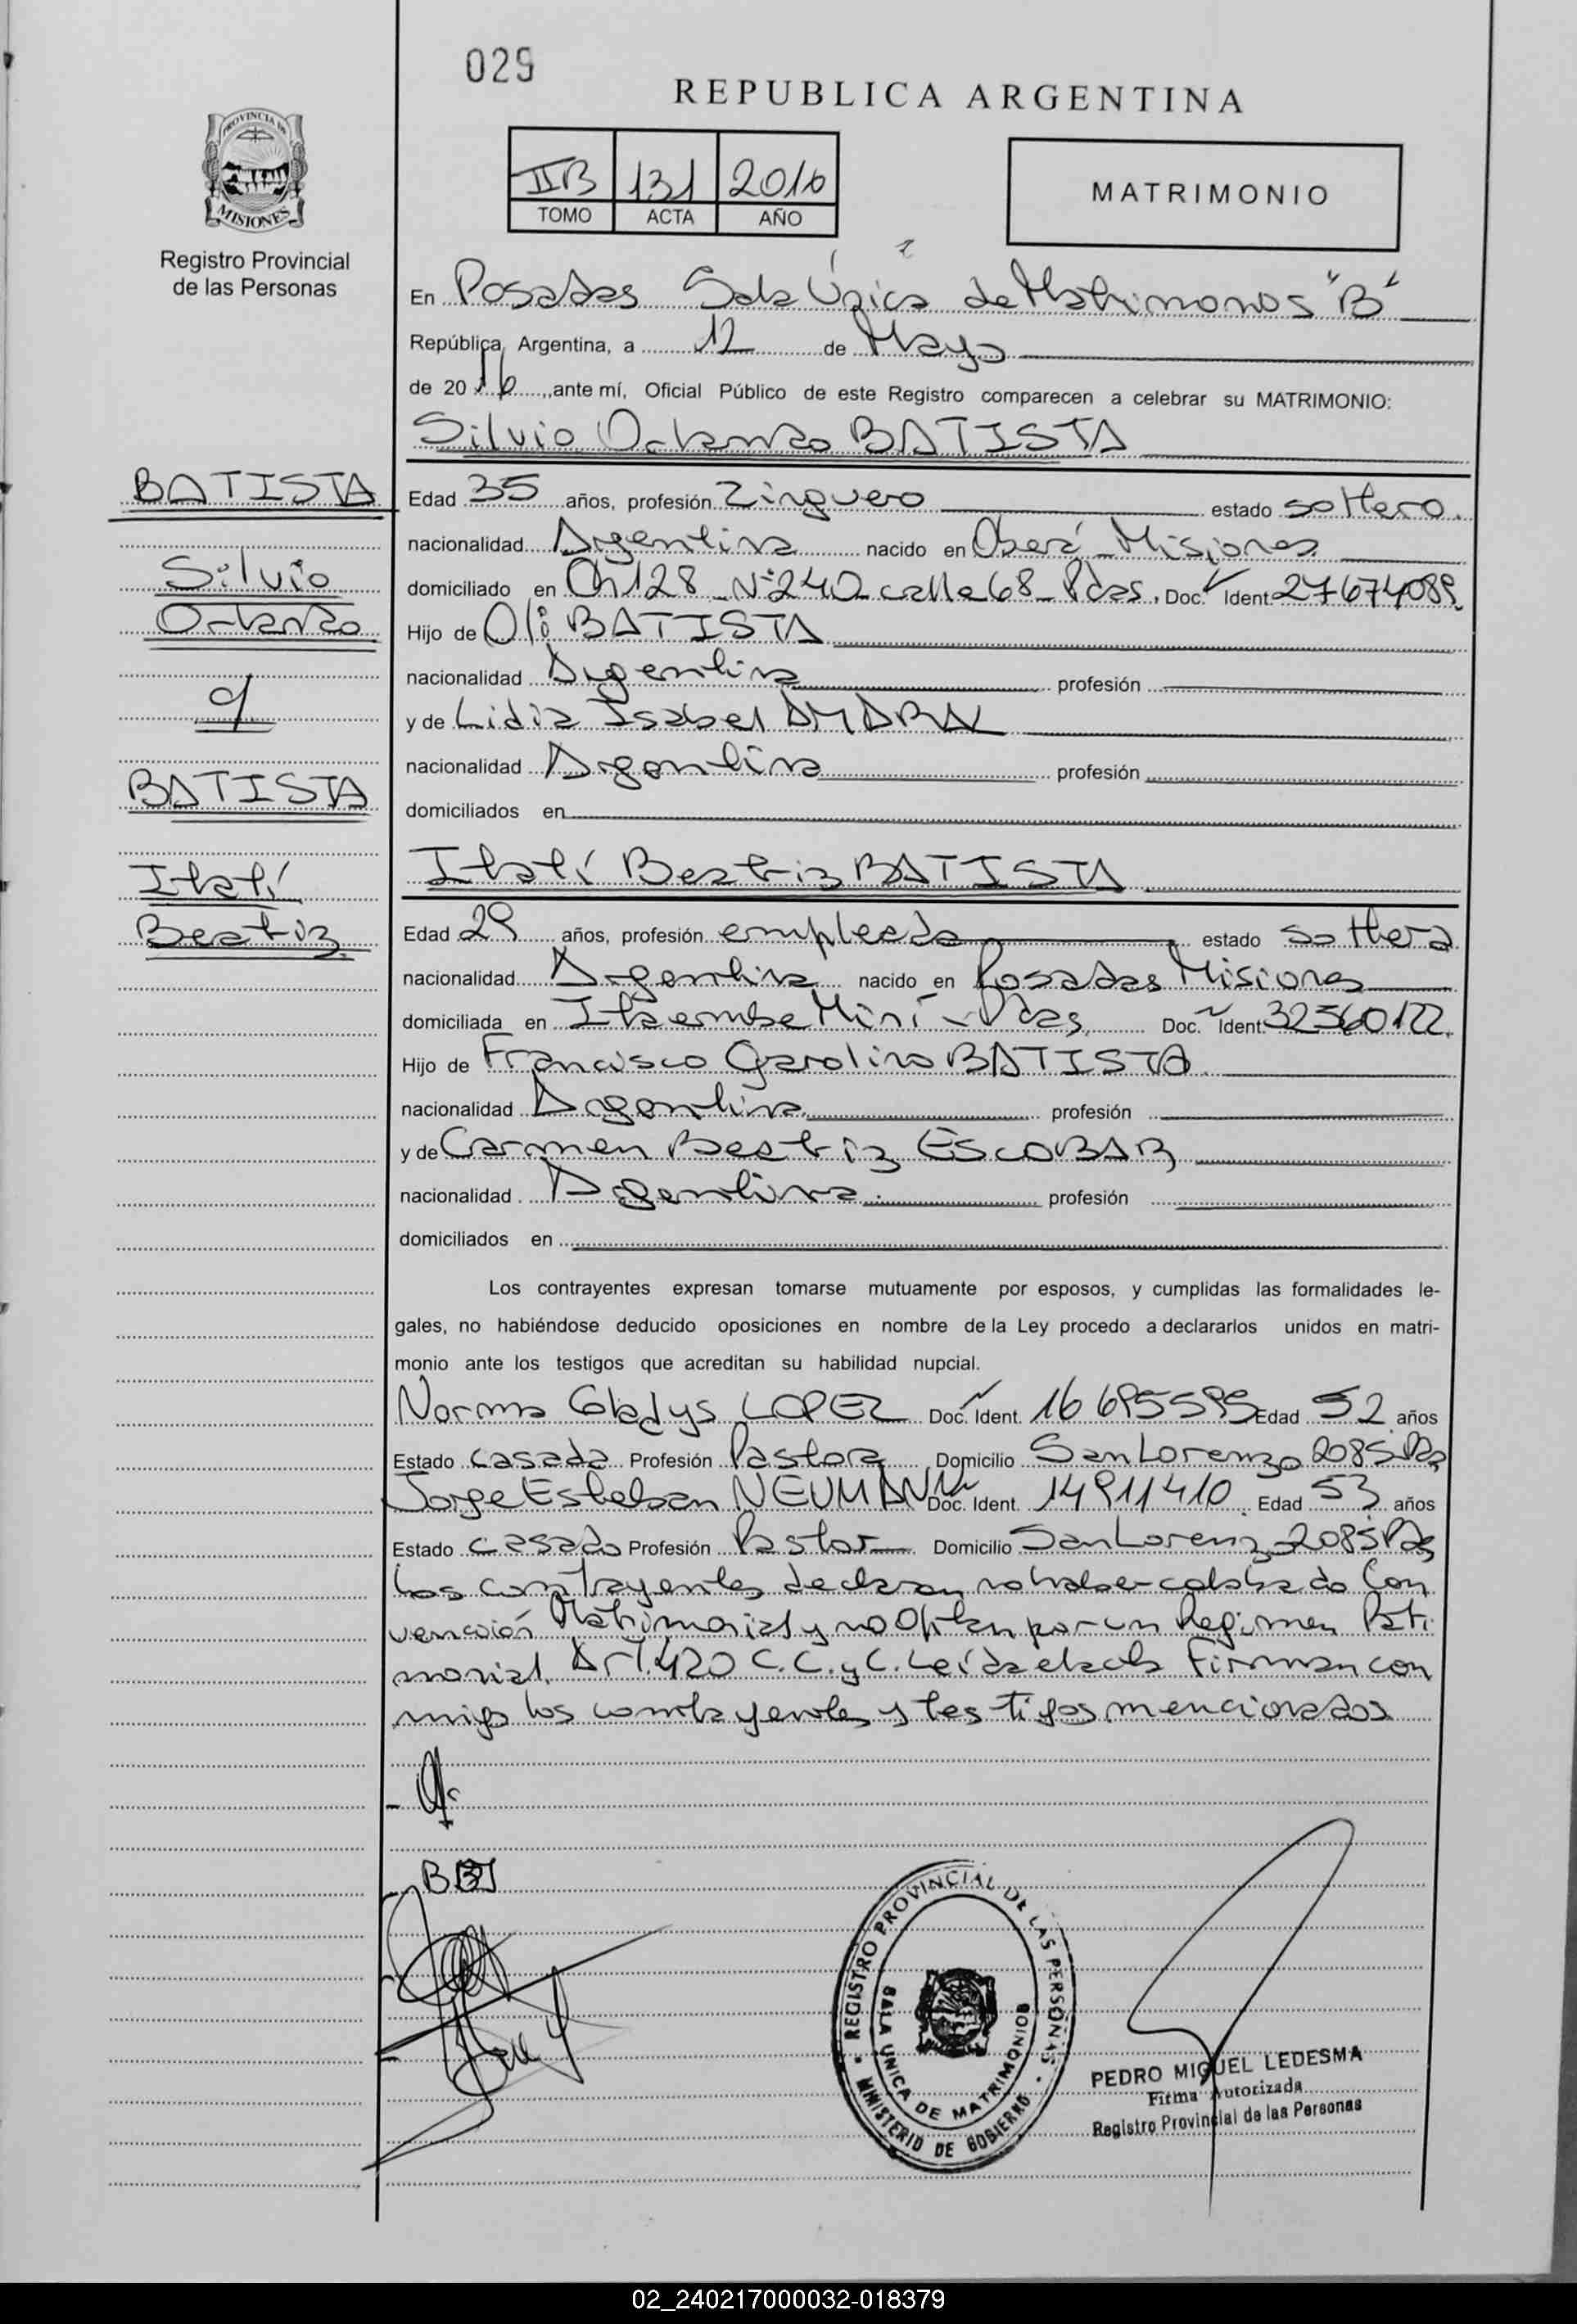 029
REPUBLICA ARGENTINA
IIB 131 2016
TOMO ACTA AÑO
MATRIMONIO
PROVINCIA DE
MISIONES
Registro Provincial
de las Personas
En Posadas Sala Única de Matrimonios "B"
República Argentina, a 12 de Mayo
de 2016, ante mí, Oficial Público de este Registro comparecen a celebrar su MATRIMONIO:
Silvio Orlando BATISTA
BATISTA
Silvio
Orlando
y
BATISTA
Itatí
Beatriz
Edad 35 años, profesión Zinguero estado soltero.
nacionalidad Argentina nacido en Oberá Misiones
domiciliado en Ch 128 Nº 240 calle 68 Pdas. Doc. Ident. 27674089
Hijo de Oli BATISTA
nacionalidad Argentina profesión
y de Lidia Isabel AMARAL
nacionalidad Argentina profesión
domiciliados en
Itatí Beatriz BATISTA
Edad 29 años, profesión empleada estado soltera
nacionalidad Argentina nacido en Posadas Misiones
domiciliada en Itaembe Miní - Pdas, Doc. Ident. 32560122.
Hijo de Francisco Garolino BATISTA
nacionalidad Argentina profesión
y de Carmen Beatriz ESCOBAR
nacionalidad Argentina profesión
domiciliados en
Los contrayentes expresan tomarse mutuamente por esposos, y cumplidas las formalidades le-
gales, no habiéndose deducido oposiciones en nombre de la Ley procedo a declararlos unidos en matri-
monio ante los testigos que acreditan su habilidad nupcial.
Norma Gladys LOPEZ Doc. Ident. 16695595 Edad 52 años
Estado casada Profesión Pastora Domicilio San Lorenzo 2085 Pdas
Jorge Esteban NEUMANN Doc. Ident. 14911410 Edad 53 años
Estado casado Profesión Pastor Domicilio San Lorenzo 2085 Pdas
Los contrayentes declaran no haber celebrado Con
vención Matrimonial y no Optan por un Regimen Patri
monial. Art. 420 C.C. y C. Leída el acta Firman con
migo los contrayentes y testigos mencionados
REGISTRO PROVINCIAL DE LAS PERSONAS
SALA UNICA DE MATRIMONIOS
MINISTERIO DE GOBIERNO
PEDRO MIGUEL LEDESMA
Firma Autorizada
Registro Provincial de las Personas
02_240217000032-018379